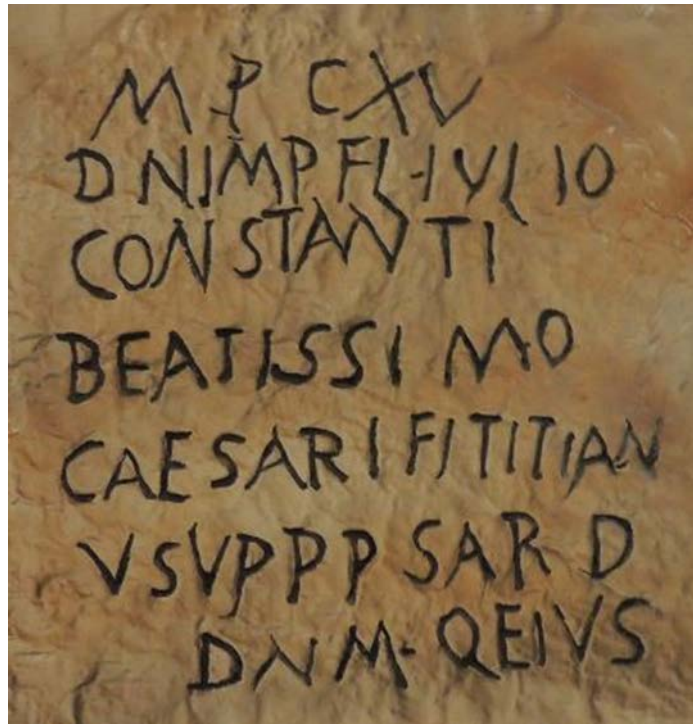 M P CXV
DNIMP FL IVLIO
CONSTANTI
BEATISSIMO
CAESARI FITITIAN
VSVPPP SAR D
DNM·QEIVS